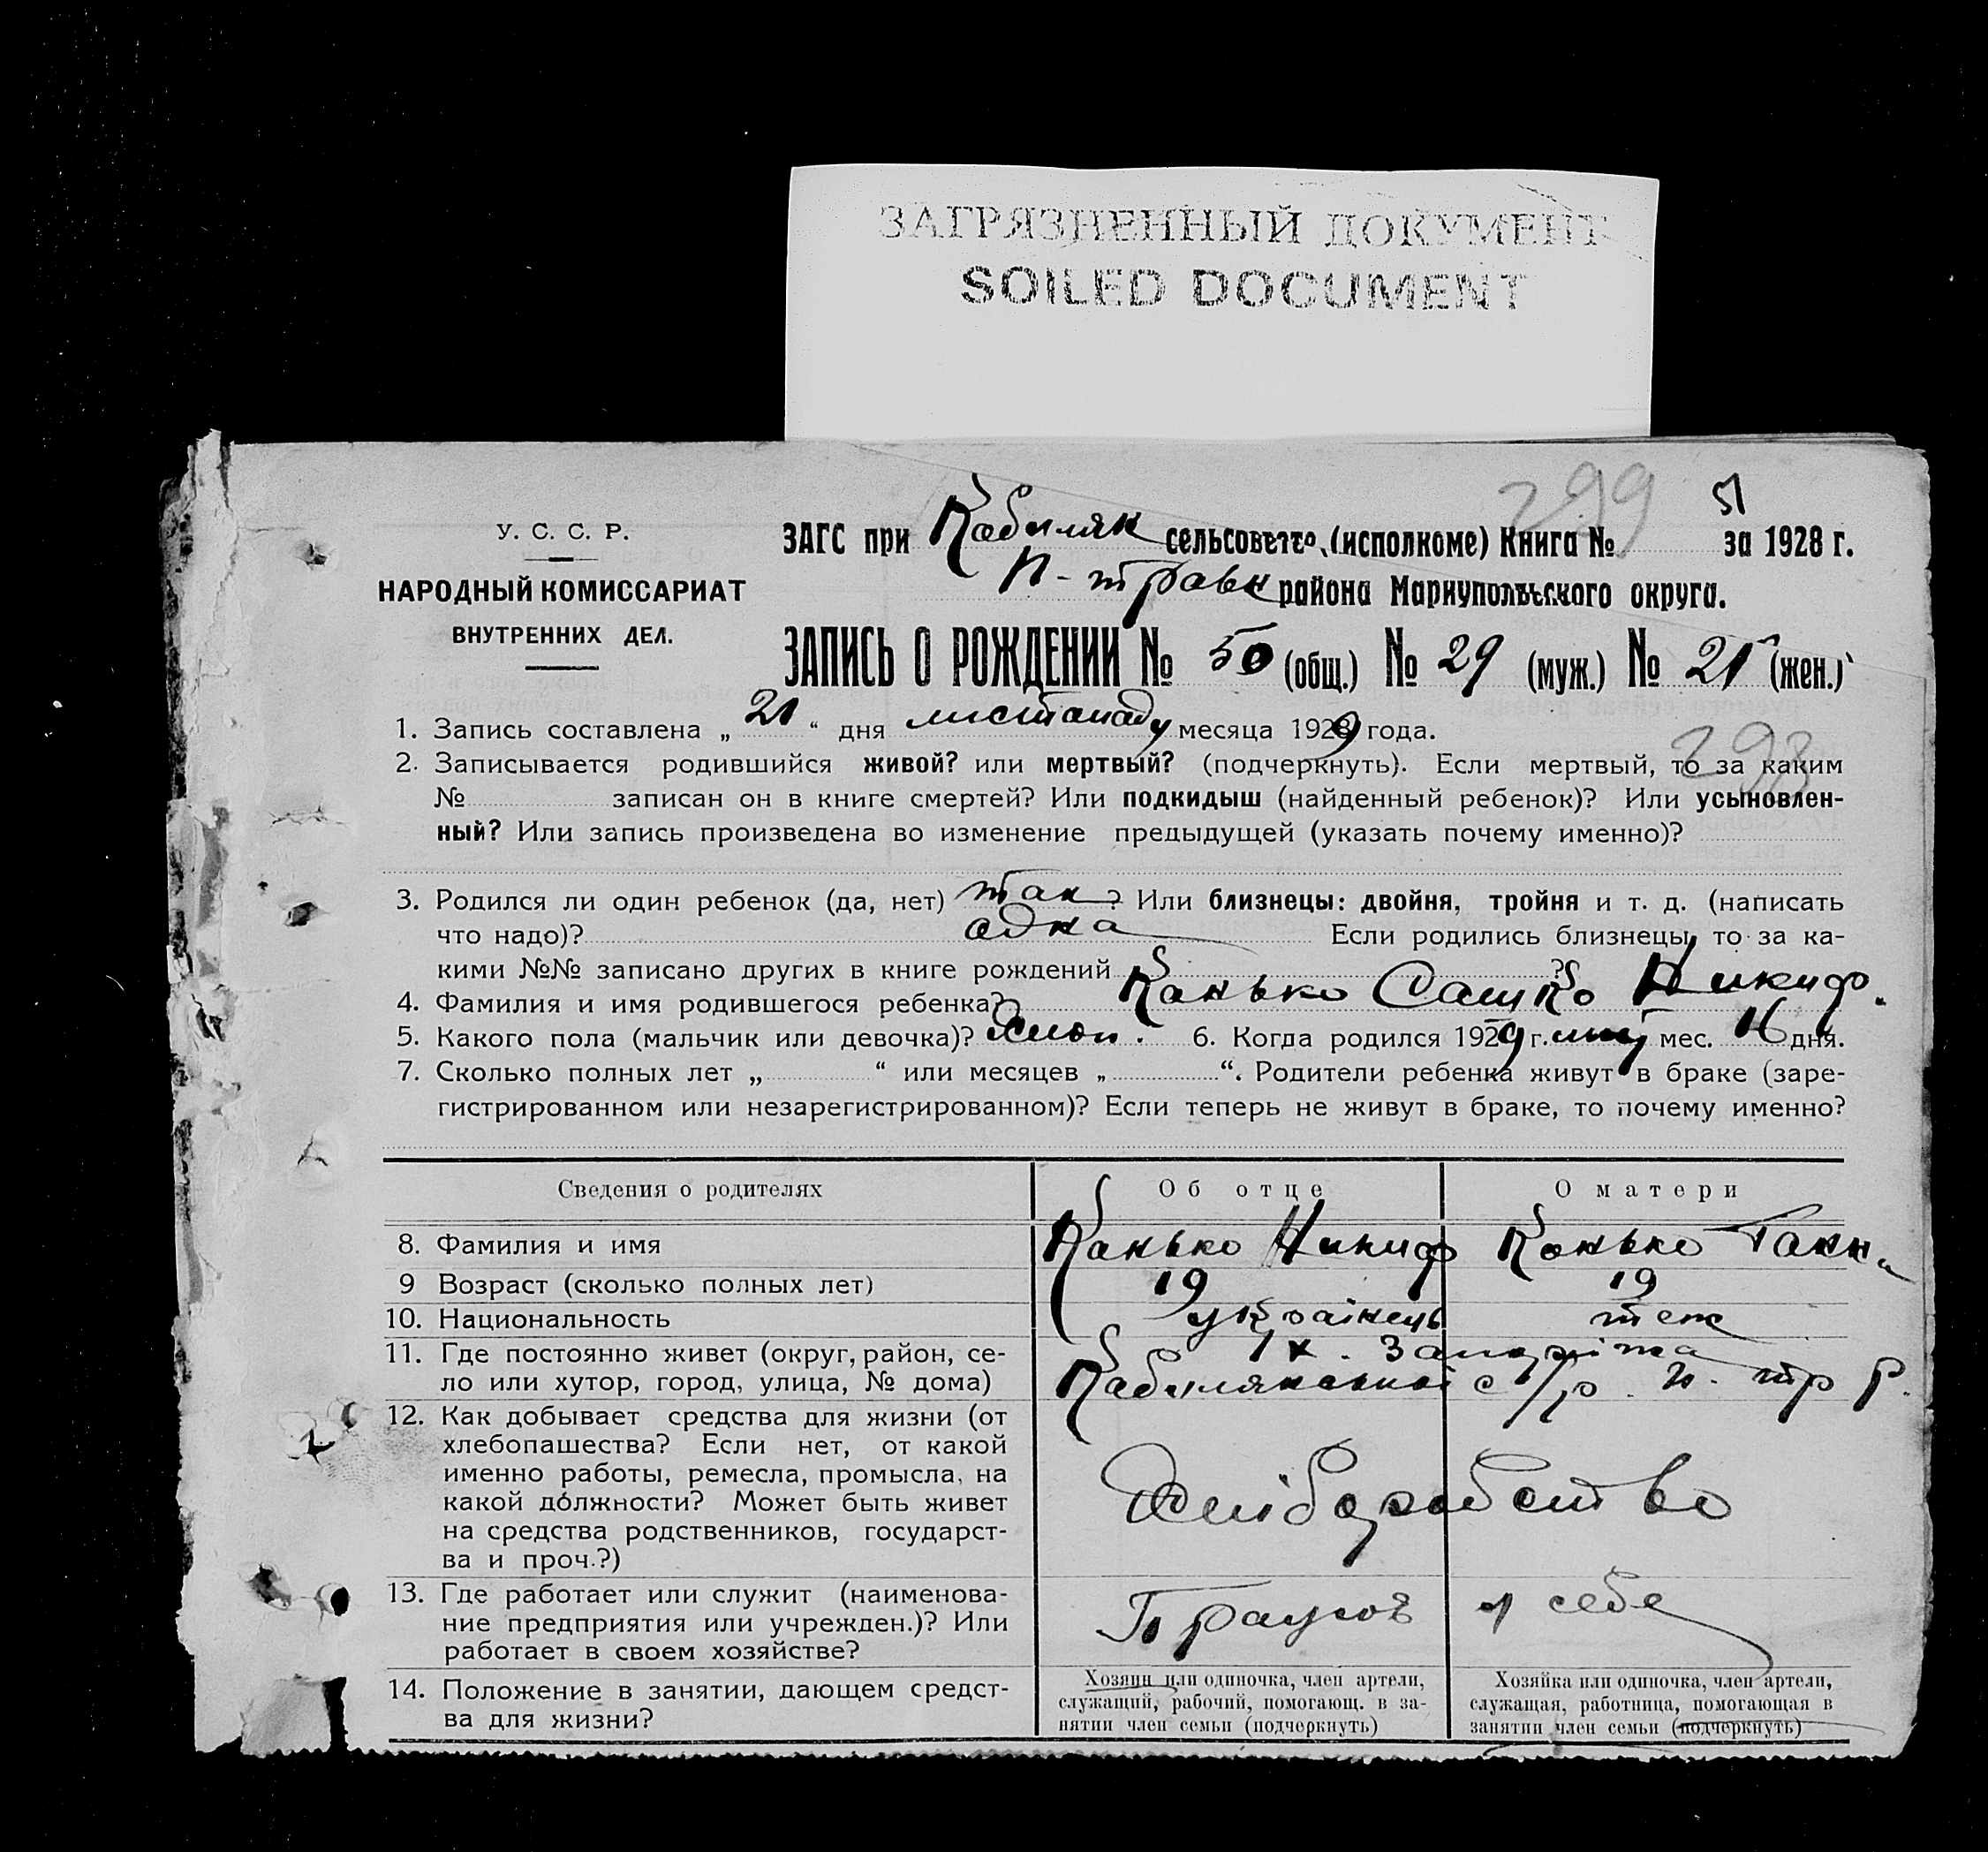 ЗАГРЯЗНЕННЫЙ ДОКУМЕНТ
SOILED DOCUMENT
299
51
У. С. С. Р.
НАРОДНЫЙ КОМИССАРИАТ
ВНУТРЕННИХ ДЕЛ.
ЗАГС при Кабиляк сельсовете, (исполкоме) Книга № за 1928 г.
П-травн района Мариупольского округа.
ЗАПИСЬ О РОЖДЕНИИ № 50 (общ.) № 29 (муж.) № 21 (жен.)
1. Запись составлена „ 21 “ дня листопаду месяца 1929 года.
298
2. Записывается родившийся живой? или мертвый? (подчеркнуть). Если мертвый, то за каким
№ записан он в книге смертей? Или подкидыш (найденный ребенок)? Или усыновлен-
ный? Или запись произведена во изменение предыдущей (указать почему именно)?
3. Родился ли один ребенок (да, нет) так ? Или близнецы: двойня, тройня и т. д. (написать
что надо)? одна Если родились близнецы, то за ка-
кими №№ записано других в книге рождений ?
4. Фамилия и имя родившегося ребенка? Канько Сашко Никиф.
5. Какого пола (мальчик или девочка)? хлоп. 6. Когда родился 1929 г. мес. 16 дня.
7. Сколько полных лет „ “ или месяцев „ “. Родители ребенка живут в браке (заре-
гистрированном или незарегистрированном)? Если теперь не живут в браке, то почему именно?
Сведения о родителях Об отце О матери
8. Фамилия и имя Канько Никиф Канько Ганна
9 Возраст (сколько полных лет) 19 19
10. Национальность українець теж
11. Где постоянно живет (округ, район, се- х. Запоріжа
ло или хутор, город, улица, № дома) Кабилякської с/р. П. тр р.
12. Как добывает средства для жизни (от
хлебопашества? Если нет, от какой
именно работы, ремесла, промысла, на
какой должности? Может быть живет
на средства родственников, государст-
ва и проч.?)
Хліборобство
13. Где работает или служит (наименова-
ние предприятия или учрежден.)? Или
работает в своем хозяйстве?
Працює у себе
14. Положение в занятии, дающем средст-
ва для жизни?
Хозяин или одиночка, член артели,
служащий, рабочий, помогающ. в за-
нятии член семьи (подчеркнуть)
Хозяйка или одиночка, член артели,
служащая, работница, помогающая в
занятии член семьи (подчеркнуть)